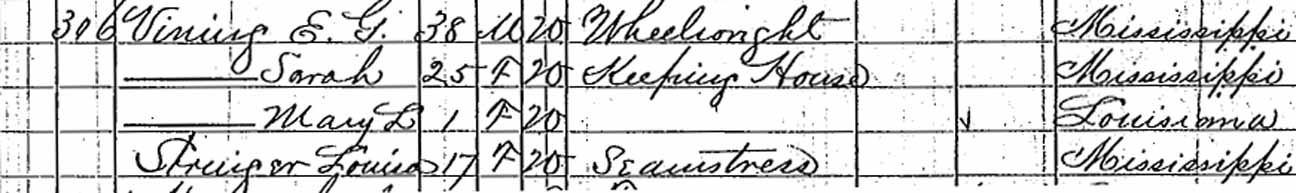 306 Vining E. G. 38 M W Wheelwright Mississippi
——— Sarah 25 F W Keeping House Mississippi
——— Mary L 1 F W Louisiana
Louisa 17 F W Seamstress Mississippi